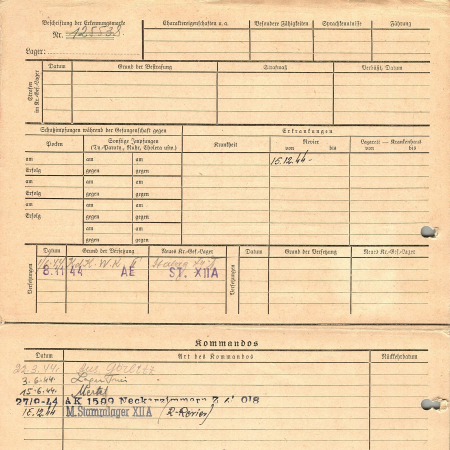 Beschriftung der Erkennungsmarke
Nr.
Lager:
Charaktereigenschaften u. a.
Besondere Fähigkeiten
Sprachkenntnisse
Führung
Strafen im Kr.-Gef.-Lager
Datum
Grund der Bestrafung
Strafmaß
Verbüßt, Datum
Schutzimpfungen während der Gefangenschaft gegen
Erkrankungen
Pocken
Sonstige Impfungen
(Ty.-Paraty., Ruhr, Cholera usw.)
Krankheit
Revier
von bis
Lazarett — Krankenhaus
von bis
am am am
16.12.44-
Erfolg gegen gegen
am am am
Erfolg gegen gegen
am am am
Erfolg gegen gegen
am am am
Erfolg gegen gegen
am am
gegen gegen
Versetzungen
Datum
Grund der Versetzung
Neues Kr.-Gef.-Lager
Versetzungen
Datum
Grund der Versetzung
Neues Kr.-Gef.-Lager
8.11 44 AE ST. XIIA
Kommandos
Datum
Art des Kommandos
Rückkehrdatum
22.3.44. aus Görlitz
3.6.44.
15.6.44.
27/9-44 AK 1599
16.12.44 M.Stammlager XIIA (z. Revier)